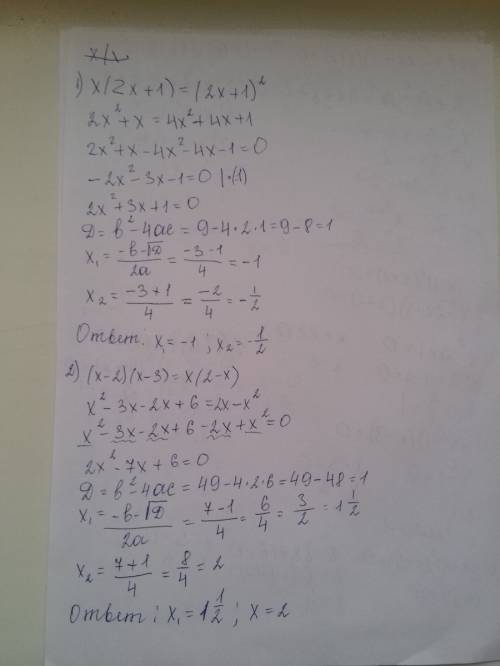 1) x(2x+1)=(2x+1)²
2x²+x=4x²+4x+1
2x²+x-4x²-4x-1=0
-2x²-3x-1=0 |·(1)
2x²+3x+1=0
D=b²-4ac=9-4*2*1=9-8=1
x₁=(-b-√D)/2a=(-3-1)/4=-1
x₂=(-3+1)/4=-2/4=-1/2
Ответ: x₁=-1; x₂=-1/2
2) (x-2)(x-3)=x(2-x)
x²-3x-2x+6=2x-x²
x²-3x-2x+6-2x+x²=0
2x²-7x+6=0
D=b²-4ac=49-4*2*6=49-48=1
x₁=(-b-√D)/2a=(7-1)/4=6/4=3/2=1 1/2
x₂=(7+1)/4=8/4=2
Ответ: x₁=1 1/2; x=2